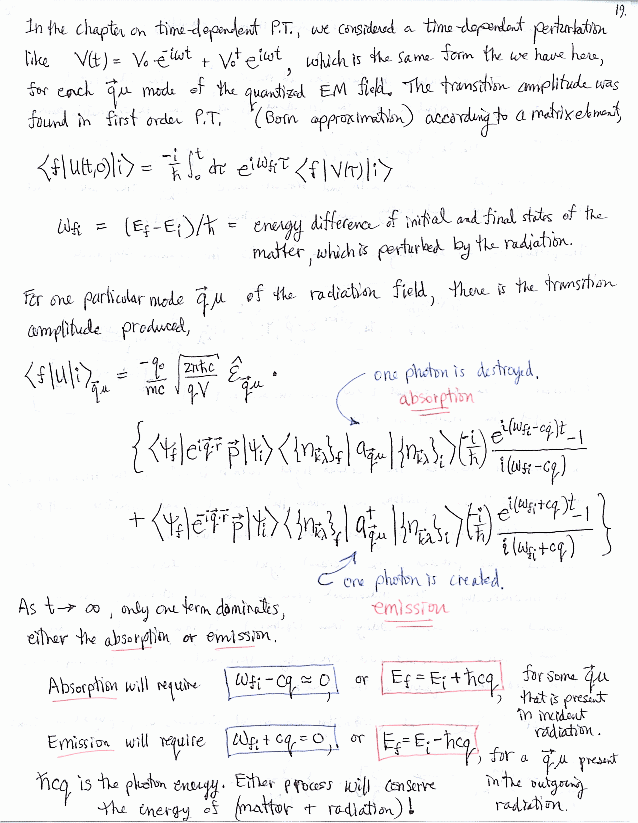 19.
In the chapter on time-dependent P.T., we considered a time-dependent perturbation
like V(t) = V₀ e^{-iωt} + V₀† e^{iωt}, which is the same form the we have here,
for each q⃗μ mode of the quantized EM field. The transition amplitude was
found in first order P.T. (Born approximation) according to a matrix element,
⟨f|U(t,0)|i⟩ = -i/ħ ∫₀ᵗ dτ e^{iω_{fi}τ} ⟨f|V(τ)|i⟩
ω_{fi} = (E_f - E_i)/ħ = energy difference of initial and final states of the
matter, which is perturbed by the radiation.
For one particular mode q⃗μ of the radiation field, there is the transition
amplitude produced,
⟨f|U|i⟩_{q⃗μ} = -q₀/mc √(2πħc/qV) ε̂_{q⃗μ} ·
one photon is destroyed.
absorption
{ ⟨ψ_f|e^{iq⃗·r⃗} p⃗|ψ_i⟩ ⟨{n_{k⃗λ}}_f| a_{q⃗μ} |{n_{k⃗λ}}_i⟩ (-i/ħ) (e^{i(ω_{fi}-cq)t} - 1)/(i(ω_{fi}-cq))
+ ⟨ψ_f|e^{-iq⃗·r⃗} p⃗|ψ_i⟩ ⟨{n_{k⃗λ}}_f| a†_{q⃗μ} |{n_{k⃗λ}}_i⟩ (-i/ħ) (e^{i(ω_{fi}+cq)t} - 1)/(i(ω_{fi}+cq)) }
one photon is created.
emission
As t → ∞, only one term dominates,
either the absorption or emission.
Absorption will require ω_{fi} - cq ≈ 0, or E_f = E_i + ħcq, for some q⃗μ
that is present
in incident
radiation.
Emission will require ω_{fi} + cq = 0, or E_f = E_i - ħcq, for a q⃗μ present
in the outgoing
radiation.
ħcq is the photon energy. Either process will conserve
the energy of (matter + radiation)!